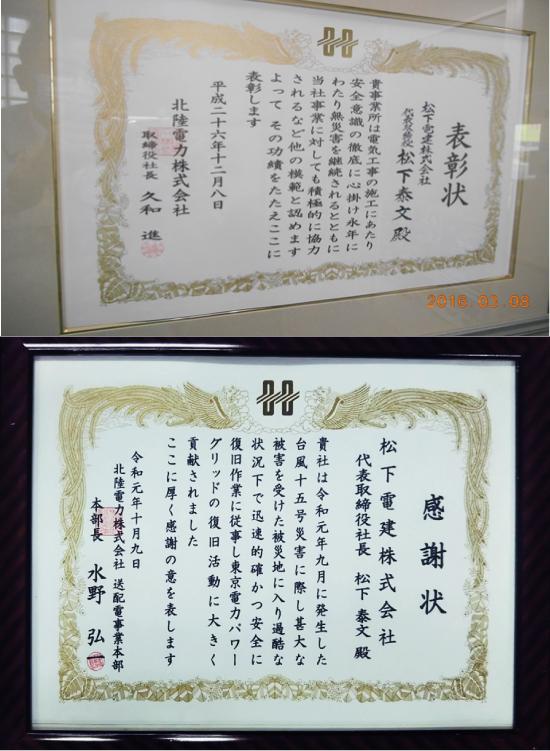 表彰状
松下電建株式会社
代表取締役 松下泰文 殿
貴事業所は電気工事の施工にあたり
安全意識の徹底に心掛け永年に
わたり無災害を継続されるとともに
当社事業に対しても積極的に協力
されるなど他の模範と認めます
よって その功績をたたえここに
表彰します
平成二十六年十二月八日
北陸電力株式会社
取締役社長 久和 進
2016.03.08
感謝状
松下電建株式会社
代表取締役社長 松下 泰文 殿
貴社は令和元年九月に発生した
台風十五号災害に際し甚大な
被害を受けた被災地に入り過酷な
状況下で迅速的確かつ安全に
復旧作業に従事し東京電力パワー
グリッドの復旧活動に大きく
貢献されました
ここに厚く感謝の意を表します
令和元年十月九日
北陸電力株式会社 送配電事業本部
本部長 水野 弘一